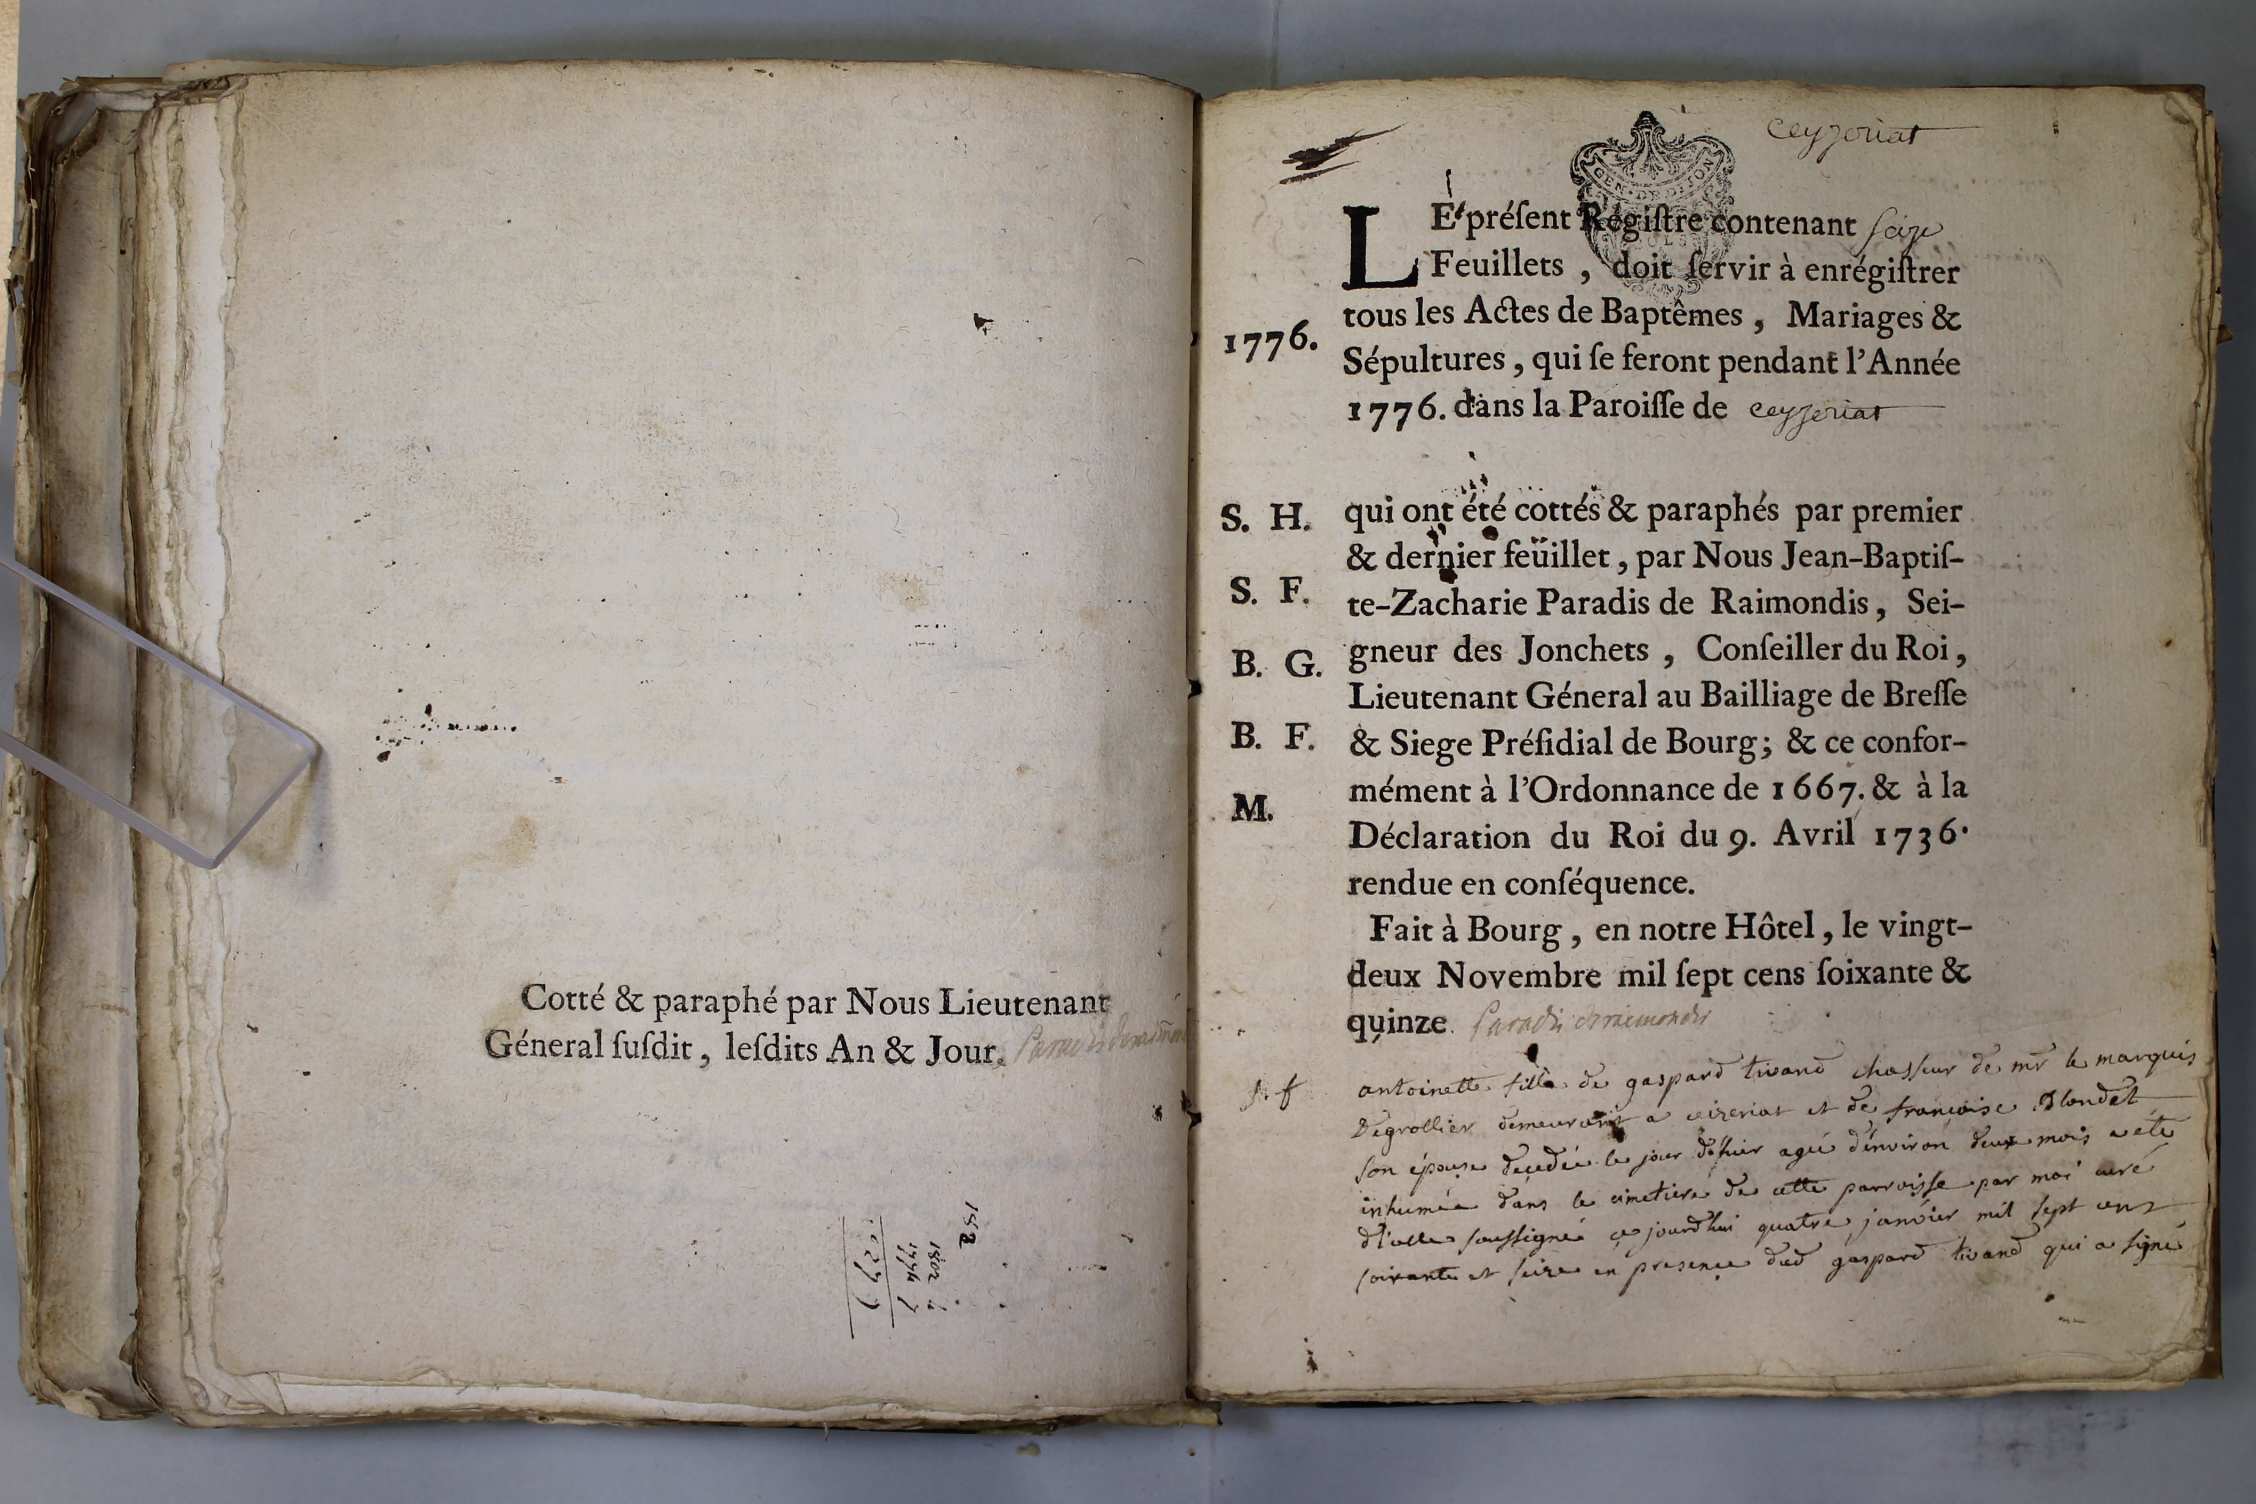 Cotté & paraphé par Nous Lieutenant
Géneral ſuſdit, leſdits An & Jour.
152
1802
1776
ceyzeriat
GEN. DE DIJON
LE préſent Régiſtre contenant ſeize
Feuillets, doit ſervir à enrégiſtrer
tous les Actes de Baptêmes, Mariages &
1776.
Sépultures, qui ſe feront pendant l'Année
1776. dans la Paroiſſe de ceyzeriat
S. H.
qui ont été cottés & paraphés par premier
& dernier feüillet, par Nous Jean-Baptiſ-
S. F.
te-Zacharie Paradis de Raimondis, Sei-
gneur des Jonchets, Conſeiller du Roi,
B. G.
Lieutenant Géneral au Bailliage de Breſſe
B. F.
& Siege Préſidial de Bourg; & ce confor-
mément à l'Ordonnance de 1667. & à la
M.
Déclaration du Roi du 9. Avril 1736.
rendue en conſéquence.
Fait à Bourg, en notre Hôtel, le vingt-
deux Novembre mil ſept cens ſoixante &
quinze. Paradis de raimondis
s. f
antoinette fille de gaspard tivand chasseur de mr le marquis
Degrollier demeurant a ceizeriat et de françoise Blondet
son épouse decedée le jour d'hier agée d'environ deux mois a eté
inhumée dans le cimetiere de cette parroisse par moi curé
d'icelle soussigné ce jourd'hui quatre janvier mil sept cent
soixante et seize en presence dud gaspard tivand qui a signé